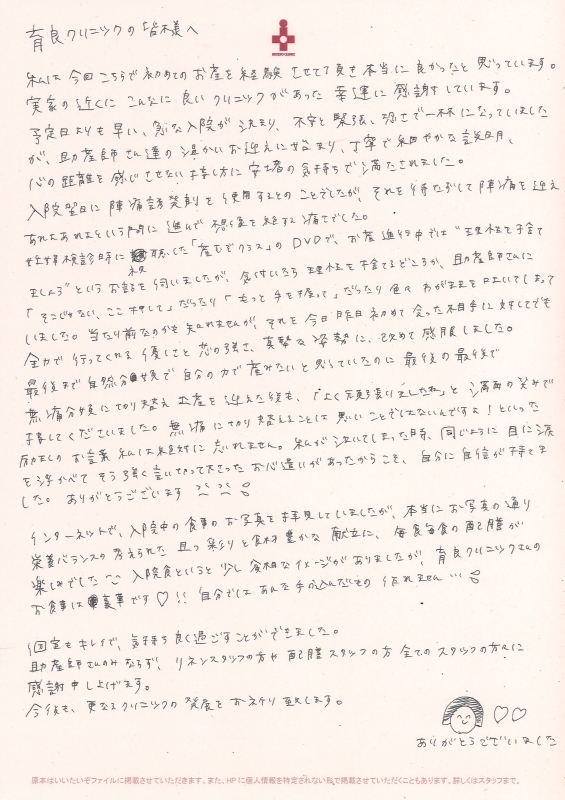 育良クリニックの皆様へ
私は今回こちらで初めてのお産を経験させて頂き本当に良かったと思っています。
実家の近くにこんなに良いクリニックがあった幸運に感謝しています。
予定日よりも早い、急な入院が決まり、不安と緊張、恐さで一杯になっていました
が、助産師さん達の温かいお迎えに始まり、丁寧で細やかな説明、
心の距離を感じさせない接し方に安堵の気持ちで満たされました。
入院翌日に陣痛誘発剤を使用するとのことでしたが、それを待たずして陣痛を迎え
あれよあれよという間に進んで想像を絶する痛さでした。
妊婦検診時に視聴した「産むぞクラス」のDVDで、お産進行中では"理性を捨て
ましょう"というお話を伺いましたが、気付いたら理性を捨てるどころか、助産師さんに
「そこじゃない、ここ押して」だったり「もっと手を握って」だったり色々わがままを口にしてしまって
いました。当たり前なのかも知れませんが、それを今日昨日初めて会った相手に対してでも
全力で行ってくれる優しさと芯の強さ、真摯な姿勢に、改めて感服しました。
最後まで自然分娩で自分の力で産みたいと思っていたのに最後の最後で
無痛分娩に切り替えお産を迎えた後も、「よく頑張りましたね」と満面の笑みで
接してくださいました。無痛に切り替えることは悪いことではないんですよ!といった
励ましのお言葉私は絶対に忘れません。私が泣いてしまった時、同じように目に涙
を浮かべてそう強く言い切って下さったお心遣いがあったからこそ、自分に自信が持てま
した。ありがとうございます
インターネットで、入院中の食事のお写真を拝見していましたが、本当にお写真の通り
栄養バランスの考えられた且つ彩りと食材豊かな献立に、毎食毎食の配膳が
楽しみでした 入院食というと少し質素なイメージがありましたが、育良クリニックさんの
お食事は豪華です♡!!自分ではあんな手の込んだもの作れません…
個室もキレイで、気持ち良く過ごすことができました。
助産師さんのみならず、リネンスタッフの方や配膳スタッフの方全てのスタッフの方々に
感謝申し上げます。
今後も、更なるクリニックの発展をお祈り致します。
♡♡
ありがとうございました
原本はいいたいぞファイルに掲載させていただきます。また、HPに個人情報を特定されない形で掲載させていただくこともあります。詳しくはスタッフまで。